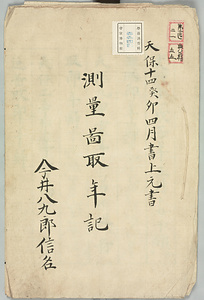 天保十四癸卯四月書上元書
測量啚取年記
今井八九郎信名